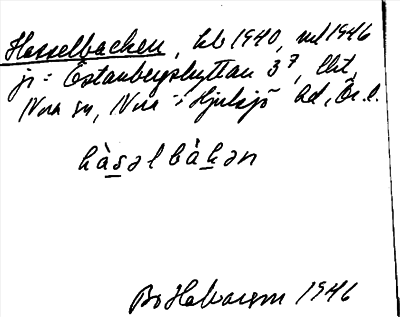 Hasselbacken, hb 1940, ml 1946
jr: Östanbergshyttan 3⁷, lht,
Nora sn, Nora - Hjulsjö hd, Ör. l.
hàs̲əlbàk̲ən
Bo Halvarson 1946